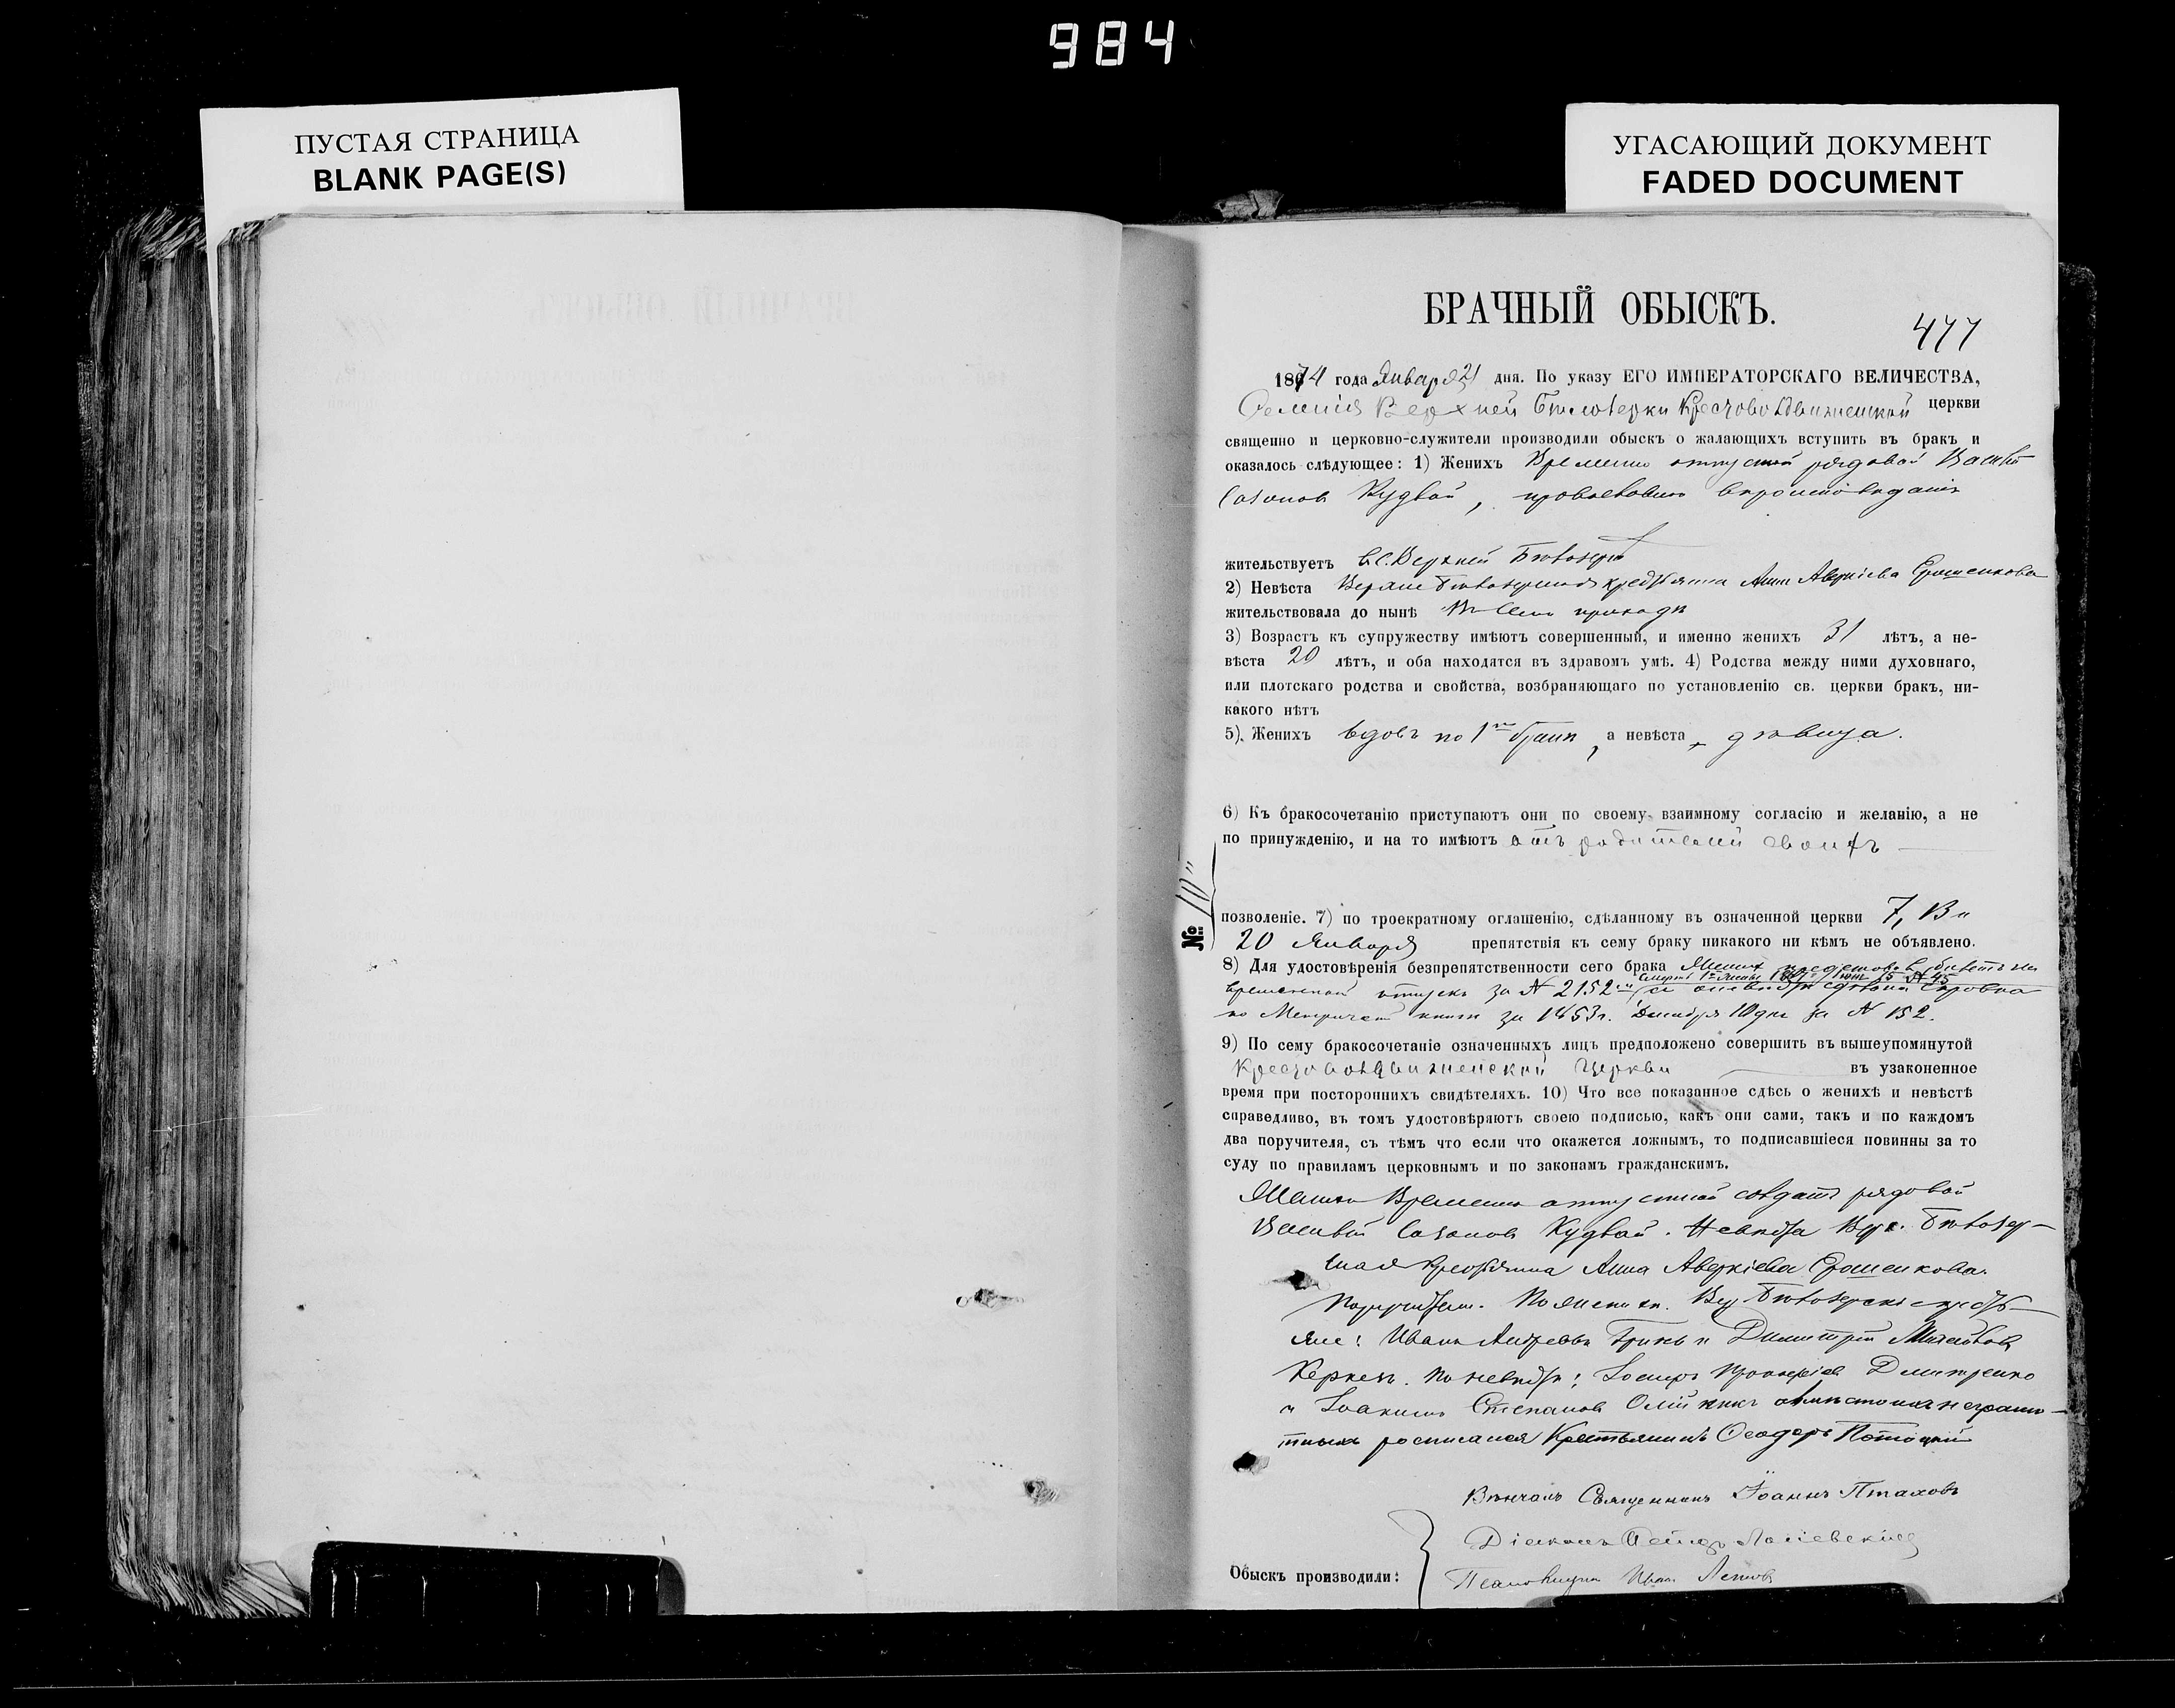 984
ПУСТАЯ СТРАНИЦА
BLANK PAGE(S)
УГАСАЮЩИЙ ДОКУМЕНТ
FADED DOCUMENT
БРАЧНЫЙ ОБЫСКЪ.
477
1874 года Января 21 дня. По указу ЕГО ИМПЕРАТОРСКАГО ВЕЛИЧЕСТВА,
Селенія Верхней Бѣлозерки Крестовоздвиженской церкви
священно и церковно-служители производили обыскъ о жалающихъ вступить въ бракъ и
оказалось слѣдующее: 1) Женихъ Временно отпускной рядовой Василій
Созоновъ Кудлай, православнаго вѣроисповѣданія
жительствуетъ въ с. Верхней Бѣлозеркѣ
2) Невѣста Верхне Бѣлозерская крестьянка Анна Аверкіева Ерошенкова
жительствовала до нынѣ въ семъ приходѣ
3) Возрастъ къ супружеству имѣютъ совершенный, и именно женихъ 31 лѣтъ, а не-
вѣста 20 лѣтъ, и оба находятся въ здравомъ умѣ. 4) Родства между ними духовнаго,
или плотскаго родства и свойства, возбраняющаго по установленію св. церкви бракъ, ни-
какого нѣтъ
5) Женихъ вдовъ по 1мъ бракѣ, а невѣста дѣвица.
6) Къ бракосочетанію приступаютъ они по своему взаимному согласію и желанію, а не
по принужденію, и на то имѣютъ отъ родителей своихъ
№ 10
позволеніе. 7) по троекратному оглашенію, сдѣланному въ означенной церкви 7, 13 и
20 Января препятствія къ сему браку никакого ни кѣмъ не объявлено.
8) Для удостовѣренія безпрепятственности сего брака Женихъ билетъ на
временной отпускъ за N 2152 справка
по Метрической книгѣ за 1853 г. Декабря 10 дня за N 152.
9) По сему бракосочетаніе означенныхъ лицъ предположено совершить въ вышеупомянутой
Крестовоздвиженской Церкви въ узаконенное
время при постороннихъ свидѣтеляхъ. 10) Что все показанное сдѣсь о женихѣ и невѣстѣ
справедливо, въ томъ удостовѣряютъ своею подписью, какъ они сами, такъ и по каждомъ
два поручителя, съ тѣмъ что если что окажется ложнымъ, то подписавшіеся повинны за то
суду по правиламъ церковнымъ и по законамъ гражданскимъ.
Женихъ Временно отпускной солдатъ рядовой
Василій Созоновъ Кудлай. Невѣста Верх. Бѣлозер-
ская крестьянка Анна Аверкіева Ерошенкова.
Поручители. По женихѣ. Вер. Бѣлозерскіе кресть-
яне: Иванъ Андреевъ и Димитрій Михайловъ
По невѣстѣ: Іосифъ Дмитренко
и Іоакимъ Степановъ Олійникъ а вмѣсто ихъ неграмо-
тныхъ росписался Крестьянинъ Ѳеодоръ Потоцкій
Вѣнчалъ Священникъ Іоаннъ Птаховъ
Діаконъ Петръ
Обыскъ производили: Псаломщикъ Иванъ